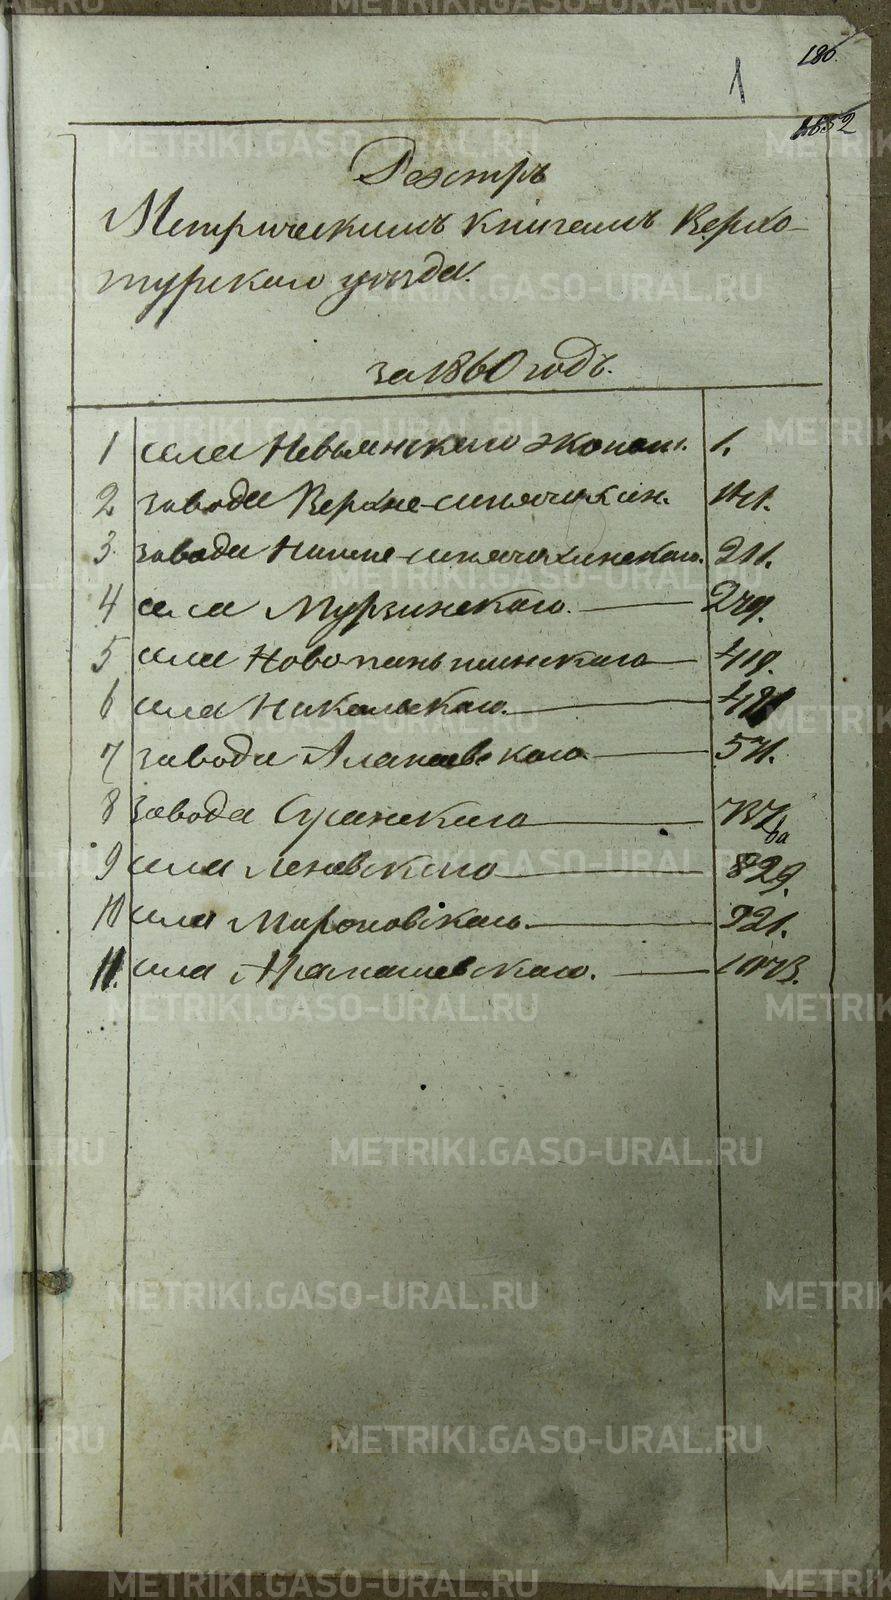 180
1
Реэстръ
Метрическимъ книгамъ Верхо-
турскаго уѣзда.
за 1860 годъ.
1 села Невьянскаго эконом. 1.
2 завода Верхне-синячихин. 141.
3. завода Нижне-синячихинскаго. 211.
4 села Мурзинскаго. 249.
5 села Новопаньшинскаго 419.
6 села Никольскаго.
7 завода Алапаевскаго 571.
8 завода Сусанскаго 737
9 села Леневскаго 829.
10 села Мироновскаго. 921.
11. села Арамашевскаго. 1073.
METRIKI.GASO-URAL.RU